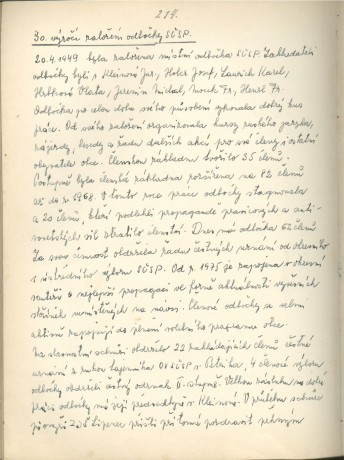 219.
30. výročí založení odbočky SČSP.
20.4.1949 byla založena místní odbočka SČSP. Zakladateli
odbočky byli s. Kleinová Jar., Holer Josef, Lavrich Karel,
Hrbková Vlasta, Jeremin Michal, Novák Fr., Henzl Fr.
Odbočka po celou dobu svého působení vykonala dobrý kus
práce. Od svého založení organizovala kursy ruského jazyka,
zájezdy, besedy a řadu dalších akcí pro své členy i ostatní
obyvatele obce. Členskou základnu tvořilo 35 členů.
Postupně byla členská základna rozšířena na 82 členů
až do r. 1968. V tomto roce práce odbočky stagnovala
a 20 členů, kteří podlehli propagandě pravicových a anti-
sovětských sil ztratilo členství. Dnes má odbočka 62 členů.
Za svou činnost obdržela řadu čestných uznání od okresního
i ústředního výboru SČSP. Od r. 1975 je zapojena v okresní
soutěži o nejlepší propagaci ve formě aktuálních výročních
skříněk umístěných na návsi. Členové odbočky se velmi
aktivně zapojují do plnění volebního programu obce.
Na slavnostní schůzi obdrželo 22 zakládajících členů čestné
uznání z rukou tajemníka OV SČSP s. Petříka, 4 členové výboru
odbočky obdrželi čestný odznak II. stupně. Velkou zásluhu na dobré
práci odbočky má její předsedkyně s. Kleinová. V průběhu schůze
pionýři ZDŠ Liperec přišli přítomné pozdravit pěkným